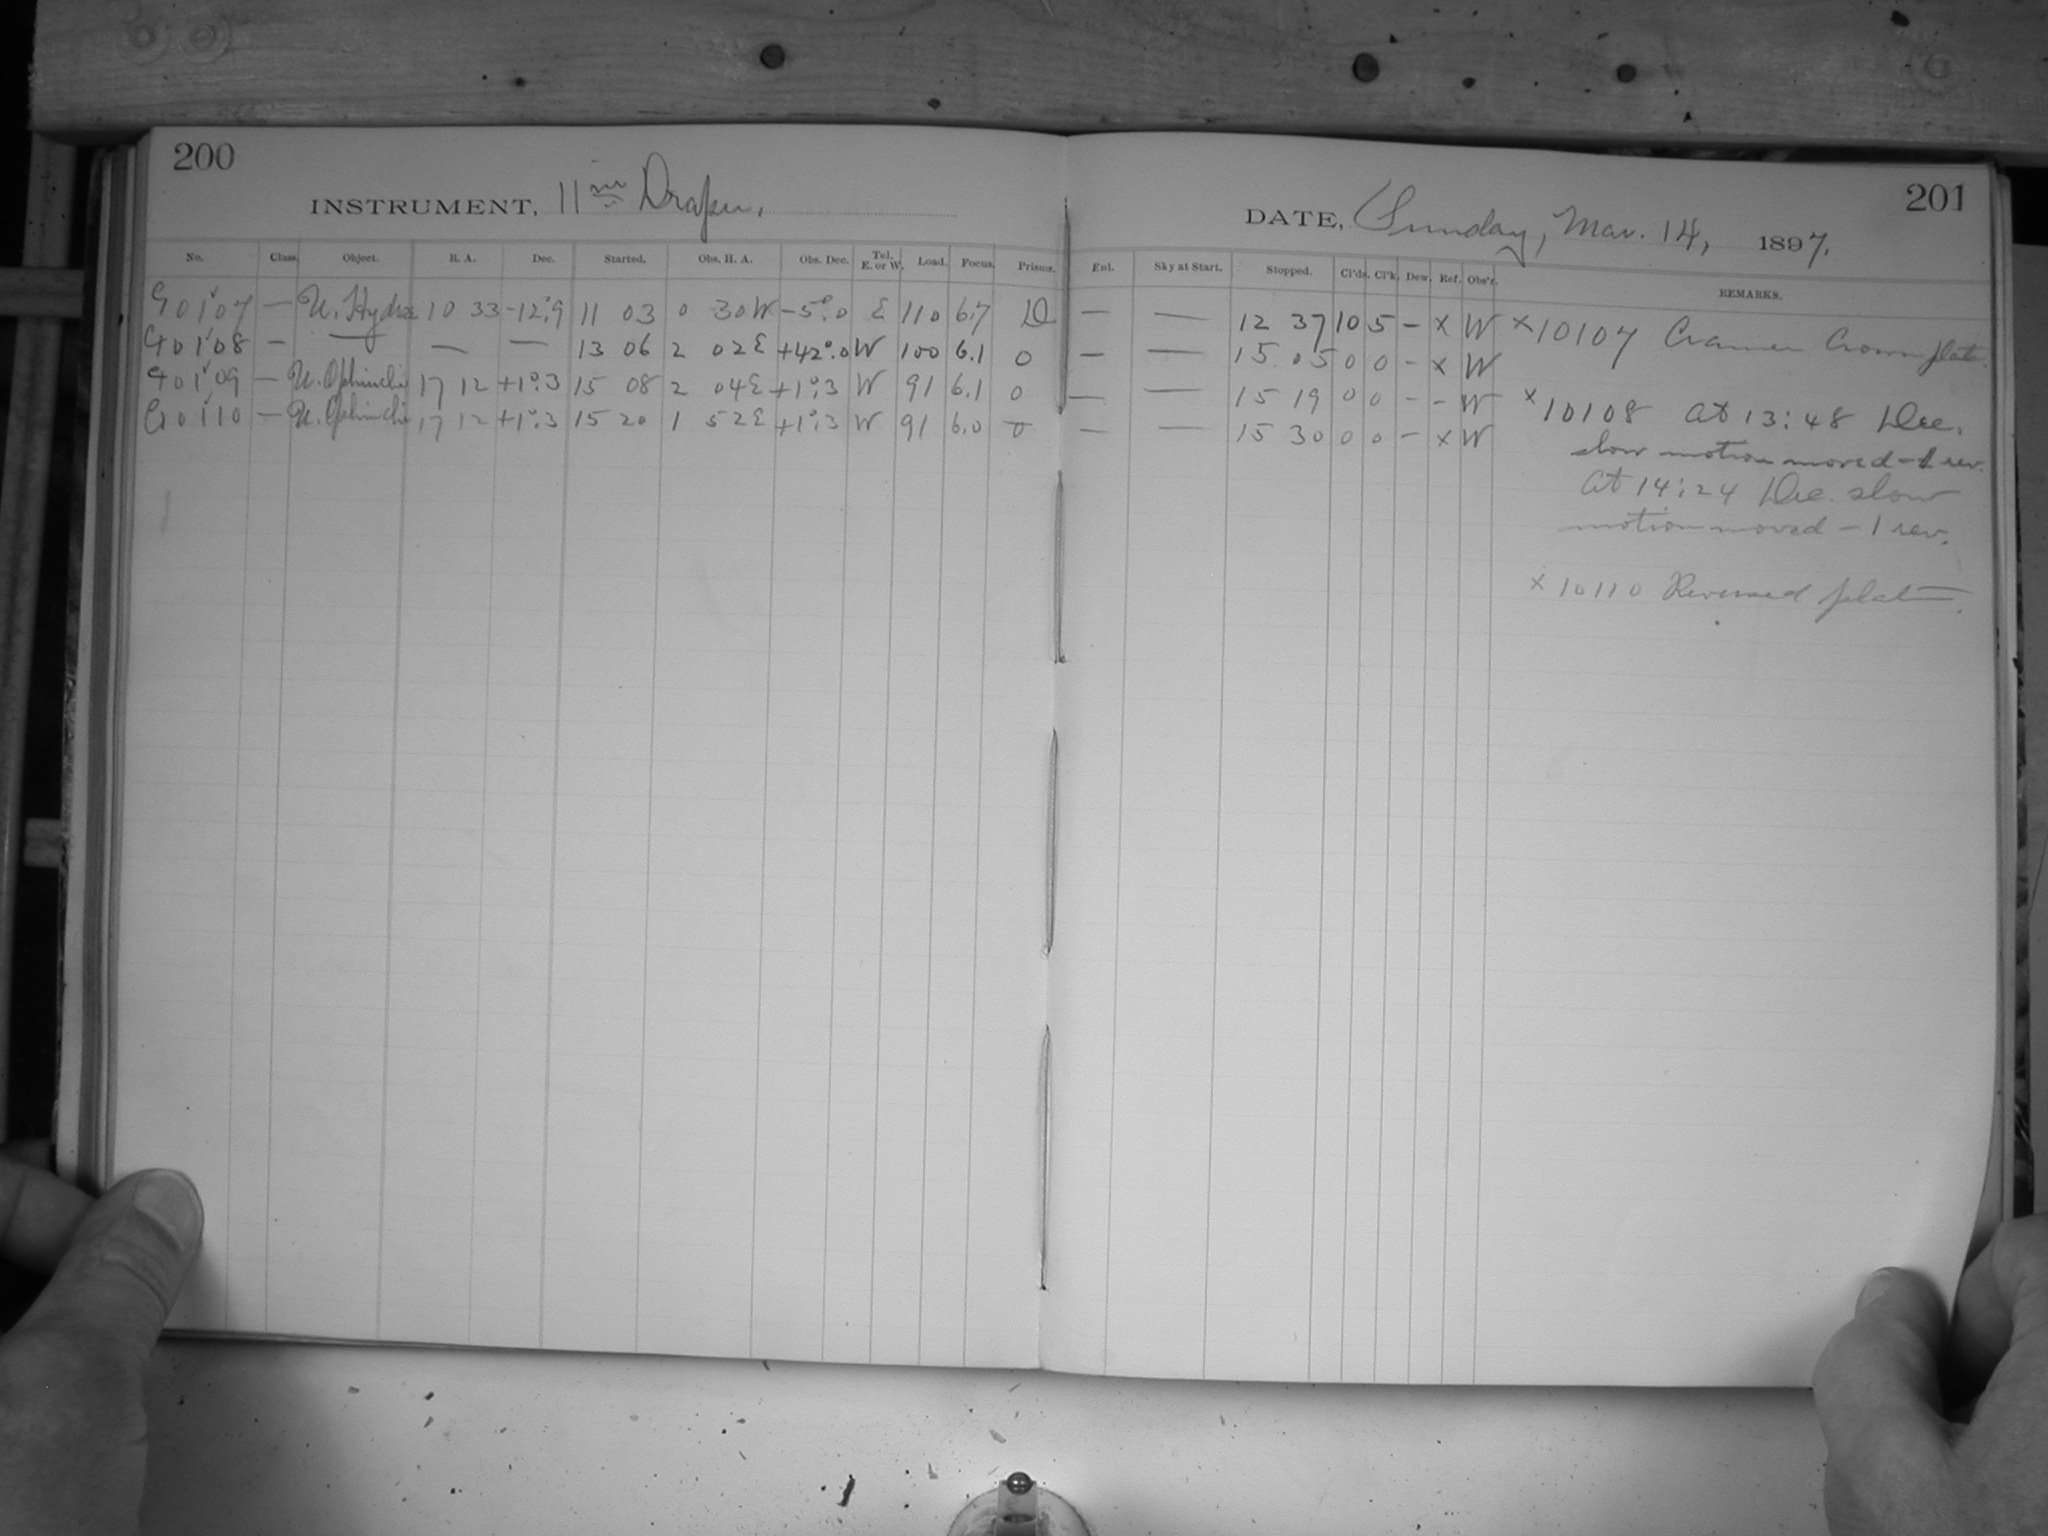 200
INSTRUMENT, 11 in Draper.
No. Class. Object. R. A. Dec. Started. Obs. H. A. Obs. Dec. Tel. E. or W. Load. Focus. Prisms.
G 10107 — U. Hydræ 10 33 -12°.9 11 03 0 30W -5°.0 E 110 6.7 D
G 10108 — — — — 13 06 2 02E +42°.0 W 100 6.1 0
G 10109 — U. Ophiuchi 17 12 +1°.3 15 08 2 04E +1°.3 W 91 6.1 0
G 10110 — U. Ophiuchi 17 12 +1°.3 15 20 1 52E +1°.3 W 91 6.0 0
201
DATE, Sunday, Mar. 14, 1897.
Enl. Sky at Start. Stopped. Cl'ds. Cl'k. Dew. Ref. Obs'r. REMARKS.
— — 12 37 10 5 – x W x10107 Cramer Crown plate.
— — 15 05 0 0 – x W
— — 15 19 0 0 – – W x10108 At 13:48 Dec.
— — 15 30 0 0 – x W
slow motion moved –1 rev.
At 14:24 Dec. slow
motion moved – 1 rev.
x 10110 Reversed plate.